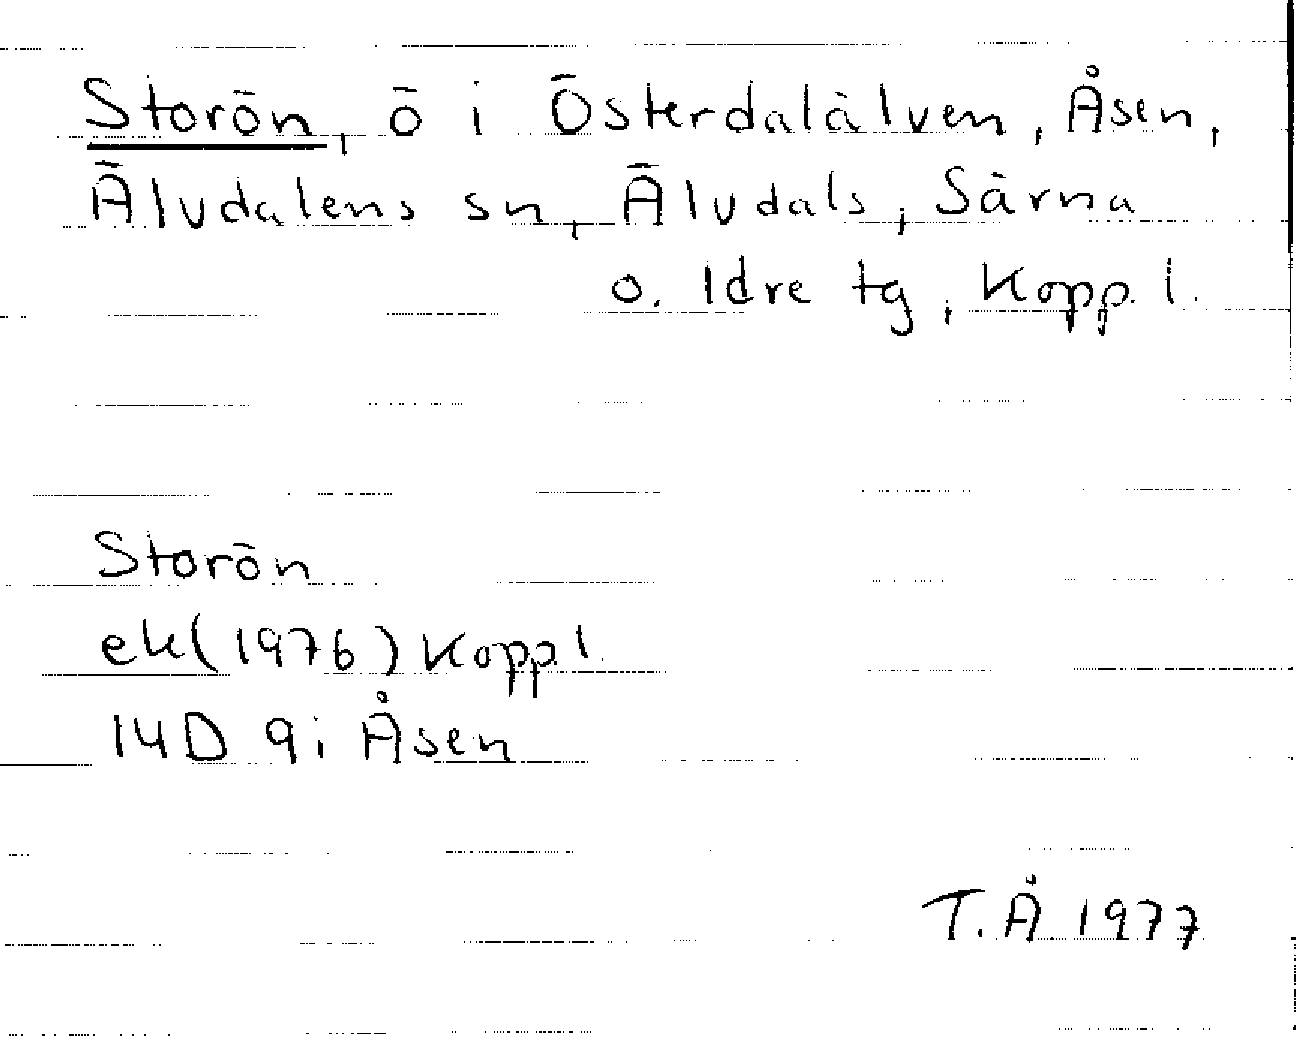 Storön, ö i Österdalälven, Åsen,
Älvdalens sn, Älvdals, Särna
o. Idre tg, Kopp. l.
Storön
ek (1976) Kopp l.
14D 9i Åsen
T. Å 1977